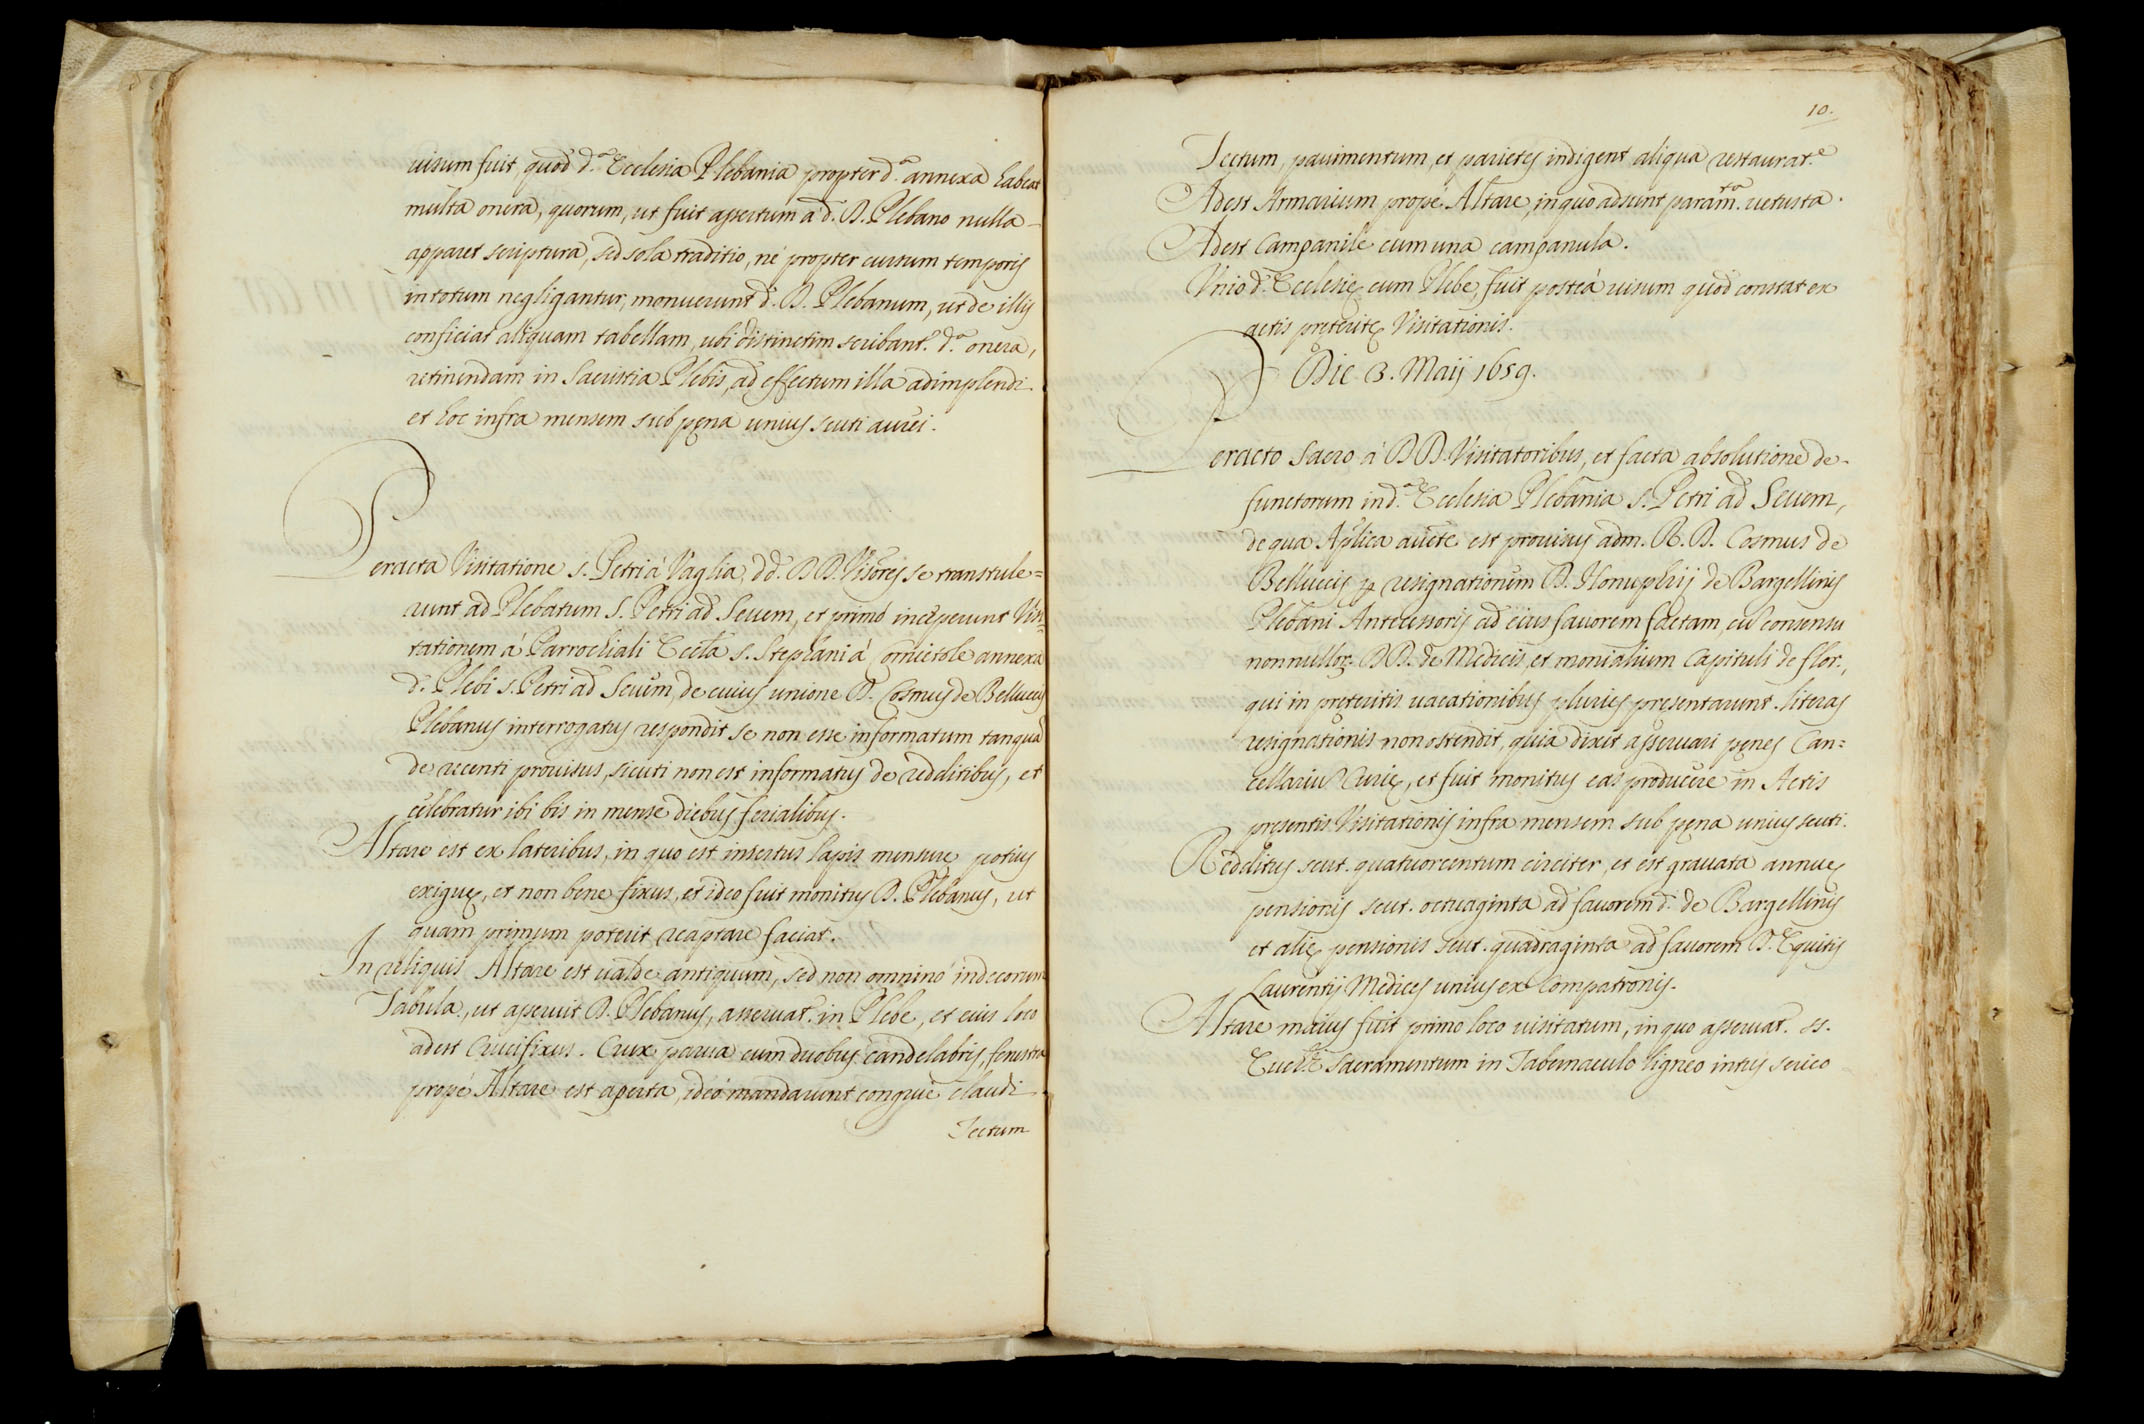 uisum fuit, quod d.ª Ecclesia Plebania propter d.ª annexa habeat
multa onera, quorum, ut fuit assertum a d. D. Plebano nulla
apparet scriptura, sed sola traditio, ne propter cursum temporis
in totum negligantur, monuerunt d. D. Plebanum, ut de illis
conficiat aliquam tabellam, ubi distinctim scribant.r d.ª onera,
retinendam in Sacristia Plebis, ad effectum illa adimplendi
et hoc infra mensem sub pęna unius scuti aurei.
Peracta Visitatione S. Petri à Vaglia, dd. DD. Visores se transtule=
runt ad Plebatum S. Petri ad Seuem, et primò inceperunt Visi=
tationem à Parrochiali Eccla S. Stephani à Cornietole annexa
d. Plebi S. Petri ad Seuem, de cuius unione D. Cosmus de Belluccis
Plebanus interrogatus respondit se non esse informatum tanquā
de recenti prouisus, sicuti non est informatus de redditibus, et
celebratur ibi bis in mense diebus ferialibus.
Altare est ex lateribus, in quo est insertus lapis mensurę potius
exiguę, et non bene fixus, et ideo fuit monitus D. Plebanus, ut
quam primum poterit reaptare faciat.
In reliquis Altare est ualde antiquum, sed non omninò indecorum
Tabula, ut aseruit D. Plebanus, asseruat.r in Plebe, et eius loco
adest Crucifixus. Crux parua cum duobus candelabris, fenestra
propè Altare est aperta, ideò mandarunt congruè claudi
Tectum
10.
Tectum, pauimentum, et parietes indigent aliqua restaurat.e
Adest Armarium propè Altare, in quo adsunt param.ta uetusta.
Adest Campanile cum una campanula.
Vnio d. Ecclesię cum Plebe, fuit posteà uisum quod constat ex
actis pręteritę Visitationis.
Die 3. Maij 1659.
Peracto Sacro à DD. Visitatoribus, et facta absolutione de-
functorum in d.ª Ecclesia Plebania S. Petri ad Seuem,
de qua Aplica aucte est prouisus adm. R. D. Cosmus de
Belluccis p resignationem D. Honuphrij de Bargellinis
Plebani Antecessoris ad eius fauorem factam, cū consensu
nonnullor. DD. de Medicis, et monialium Capituli de flor.,
qui in pręteritis uacationibus pluries presentarunt. literas
resignationis non ostendit, quia dixit asseruari pęnes Can=
cellariū Curię, et fuit monitus eas producere in Actis
presentis Visitationis infra mensem sub pęna unius scuti.
Redditus scut. quatuorcentum circiter, et est grauata annuę
pensionis scut. octuaginta ad fauorem d. de Bargellinis
et alię pensionis scut. quadraginta ad fauorem D. Equitis
Laurentij Medices unius ex Compatronis.
Altare maius fuit primo loco uisitatum, in quo asseruat.r SS.
Euch.ę Sacramentum in Tabernaculo ligneo intus serico